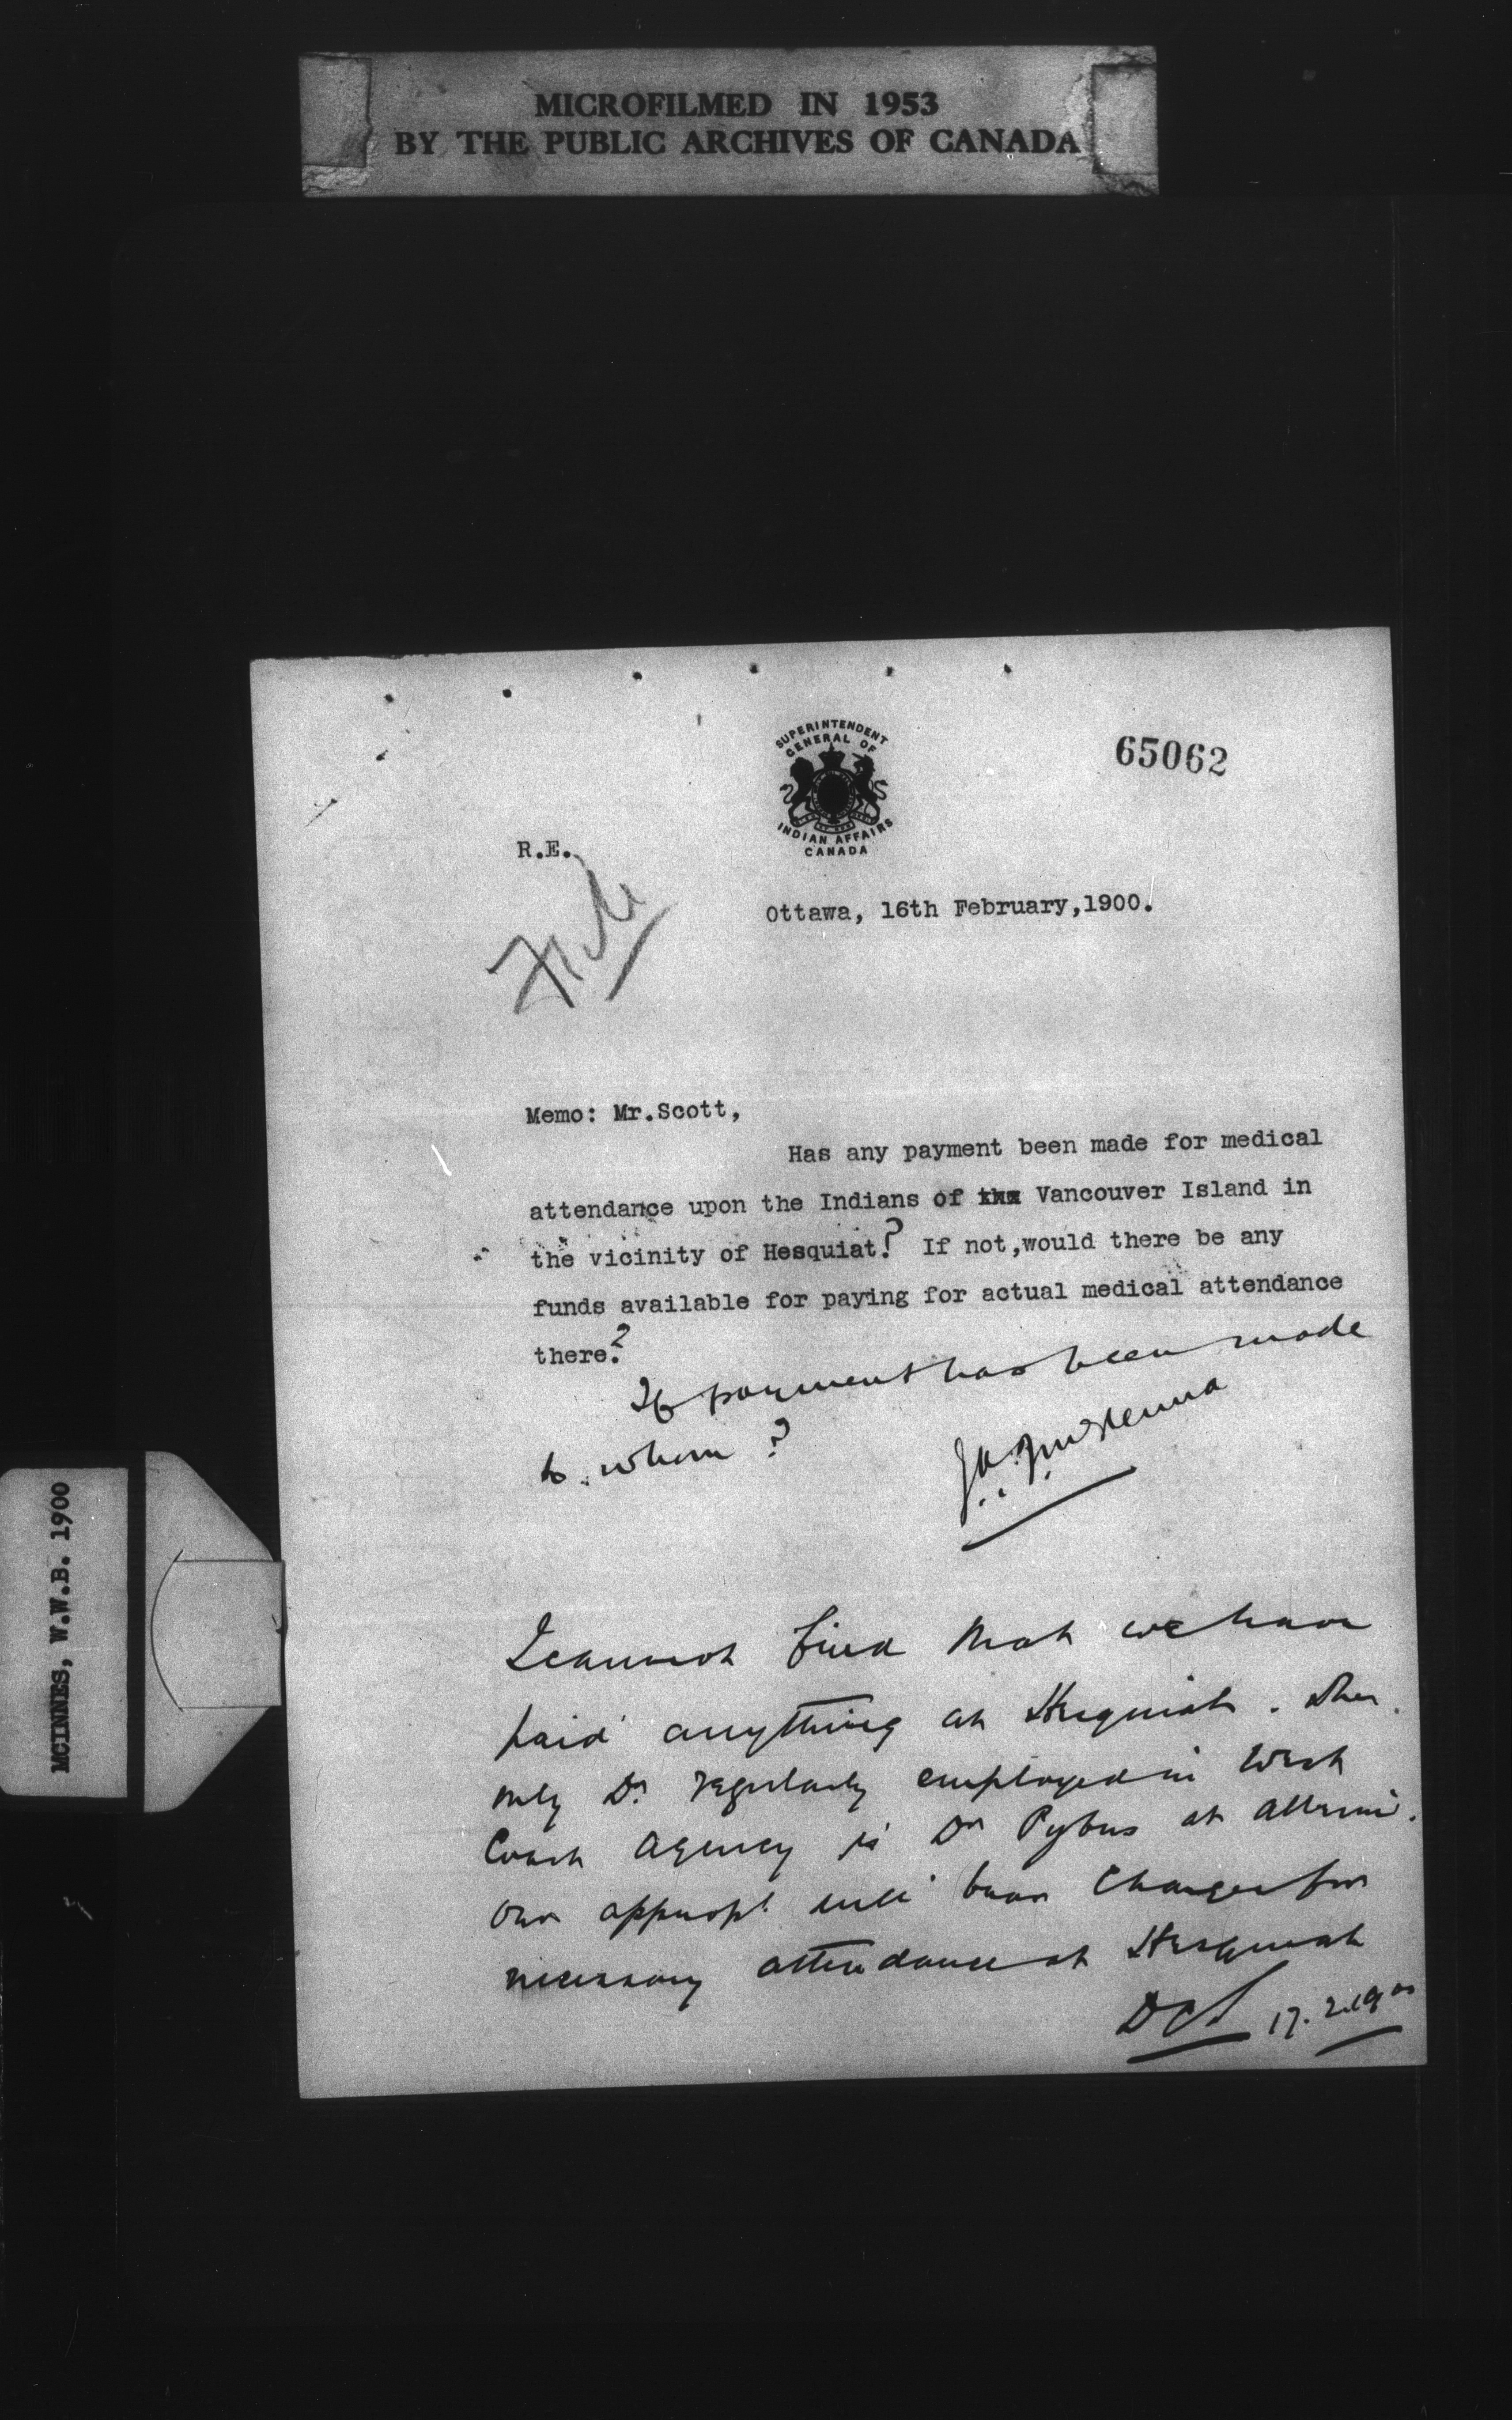 MICROFILMED IN 1953
BY THE PUBLIC ARCHIVES OF CANADA
SUPERINTENDENT
GENERAL OF
INDIAN AFFAIRS
CANADA
65062
R.E.
File
Ottawa, 16th February,1900.
Memo: Mr.Scott,
Has any payment been made for medical
attendance upon the Indians of the Vancouver Island in
the vicinity of Hesquiat? If not,would there be any
funds available for paying for actual medical attendance
there?
If payment has been made
to whom?
J.A.J. McKenna
I cannot find that we have
paid anything at Hesquiat. The
only Dr. regularly employed in West
Coast Agency is Dr Pybus at Alberni.
Our appropt. will bear charges for
necessary attendance at Hesquiat
DCS 17.2.1900
MCINNES, W.W.B. 1900